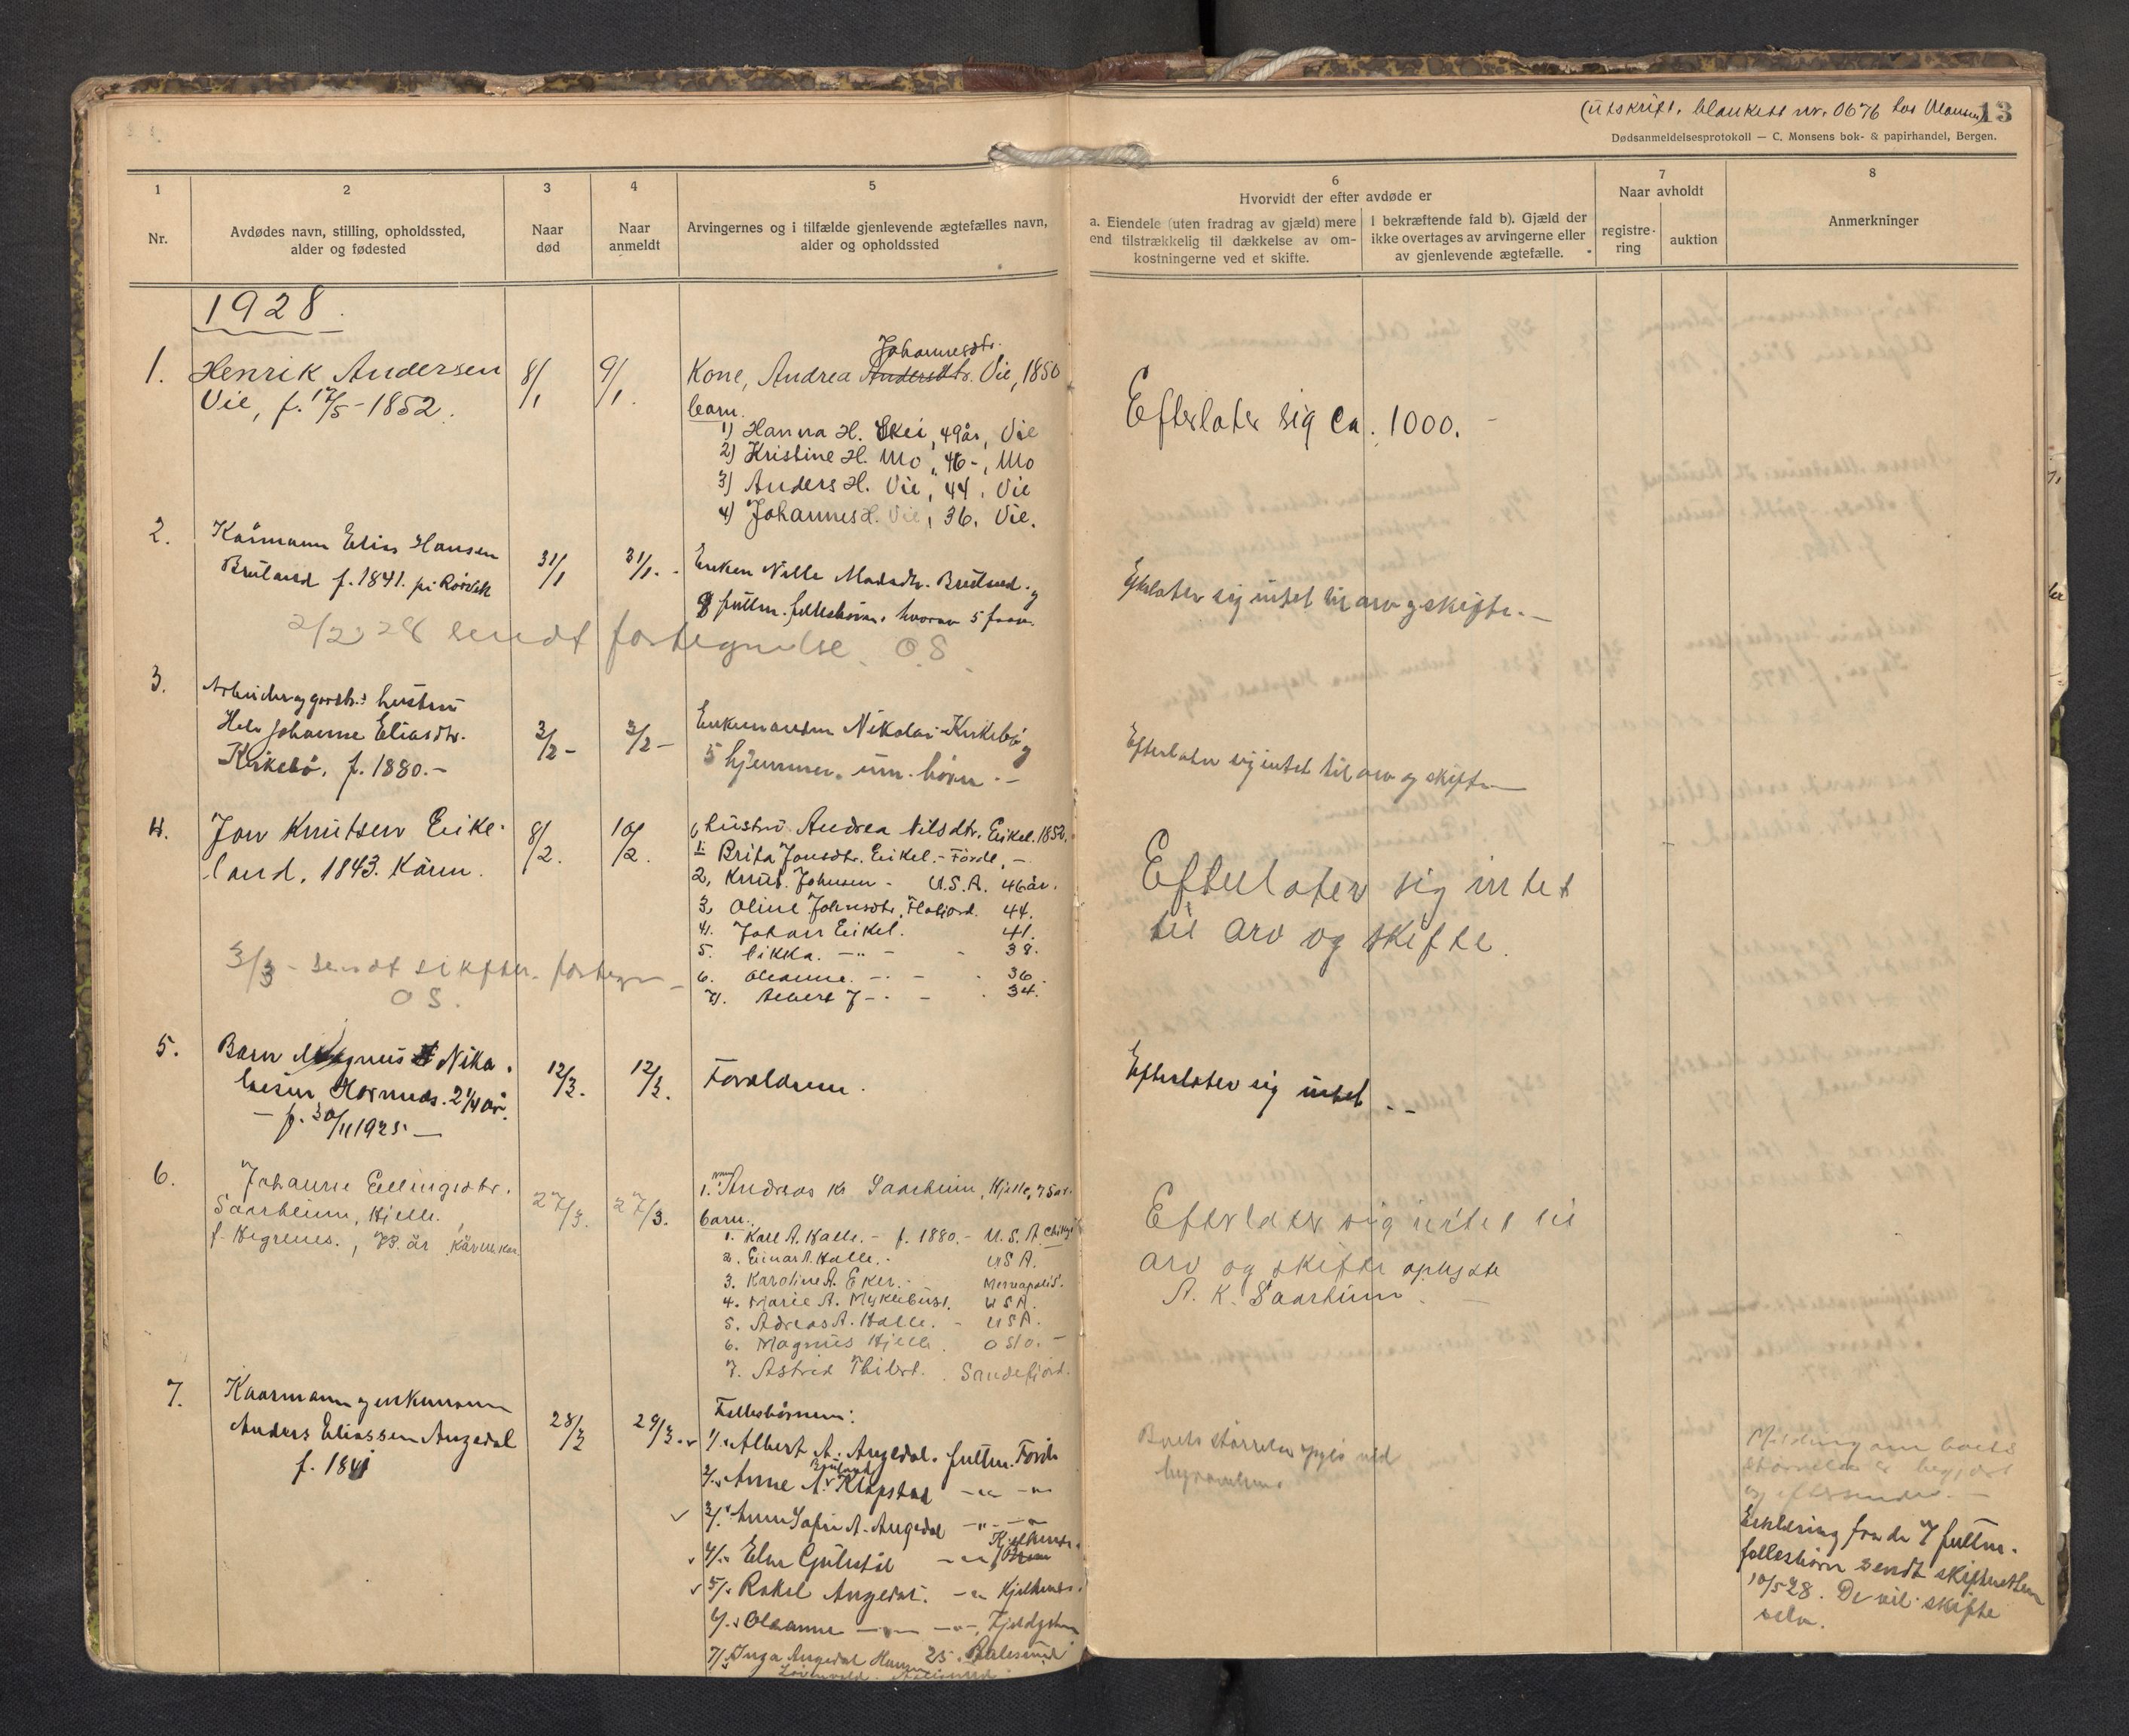 (utskrift. blankett nr. 0676 hos Monsen)
13
Dødsanmeldelsesprotokoll — C. Monsens bok- & papirhandel, Bergen.
1
Nr.
2
Avdødes navn, stilling, opholdssted,
alder og fødested
3
Naar
død
4
Naar
anmeldt
5
Arvingernes og i tilfælde gjenlevende ægtefælles navn,
alder og opholdssted
6
Hvorvidt der efter avdøde er
a. Eiendele (uten fradrag av gjæld) mere
end tilstrækkelig til dækkelse av om-
kostningerne ved et skifte.
I bekræftende fald b). Gjæld der
ikke overtages av arvingerne eller
av gjenlevende ægtefælle.
7
Naar avholdt
registre-
ring
auktion
8
Anmerkninger
1928.
1.
Henrik Andersen
Vie, f. 17/5-1852.
8/1
9/1.
Johannesdtr.
Kone, Andrea Andersdtr. Vie, 1850
barn.
1) Hanna H. Skei, 49 år, Vie
2) Kristine H. Mo, 46 -, Mo
3) Anders H. Vie, 44, Vie
4) Johannes H. Vie, 36, Vie.
Efterlater sig ca. 1000. -
2.
Kårmann Elias Hansen
Bruland f. 1841. på
31/1
31/1. -
Enken Nille Madsdtr. Bruland og
8 fullm. fellesbørn, hvorav 5 frav.
Efterlater sig intet til arv og skifte. -
2/2 28 sendt fortegnelse OS
3.
hustru
Johanne Eliasdtr.
Kirkebö, f. 1880. -
3/2 -
3/2 -
Enkemanden Nikolai Kirkebö og
5 hjemmev. um. börn. -
Efterlater sig intet til arv og skifte -
4.
Jon Knutsen Eike-
land, 1843. Kårm.
8/2.
10/2.
hustru Andrea Nilsdtr. Eikel. 1852.
1. Brita Jonsdtr. Eikel. - Förde, -
2, Knut Johnsen - U.S.A. 46 år.
3, Oline Johnsdtr. 44.
4. Johan Eikel. 41.
5. Rikka. -"- - - 38.
6. Oleanne. -. - - 36.
7. Albert J -. - . 34.
Efterlater sig intet
til arv og skifte.
3/3 - sendt skifter. fortegn -
OS.
5.
Barn Magnus Nika-
laisen Hornnes. 2 1/4 år.
- f. 30/11 1925 -
12/3.
12/3.
Foreldrene.
Efterlater sig intet . -
6.
Johanne Ellingsdtr.
Saarheim, Hjelle.
f. Hegrenes., 73. år
27/3.
27/3.
1. Andreas K Saarheim, Hjelle, 75 år.
barn.
1. Karl A. Halle. - f. 1880. - U.S.A.
2. Einar A. Halle. - USA.
3. Karoline A. Eker. -
4. Marie A. Myklebust. USA.
5. Adreas A. Halle. - USA.
6. Magnus Hjelle. Oslo. -
7. Astrid . Sandefjord.
Efterlater sig intet til
arv og skifte oplyste
A. K. Saarheim. -
7.
Kaarmann og enkemann
Anders Eliassen Angedal
f. 1841
28/3
29/3. -
Fellesbørnene:
1/. Albert A. Angedal. fullm. Förde
Bruland
2/. Anne A. Klopstad -"- -"-
3/. Anne Sofie A. Angedal -"- -"-
4/. Elen Gulestöl -"-
5/. Rakel Angedal. -"-
6/. Oleanne -"- -"-
7/. Inga Angedal 25. Aalesund
Boets størrelse
Melding om boets
størrelse er begjært
og eftersendes. -
Erklæring fra de 7 fullm.
fellesbørn sendt skifteretten
10/5 28. De vil skifte
selv.